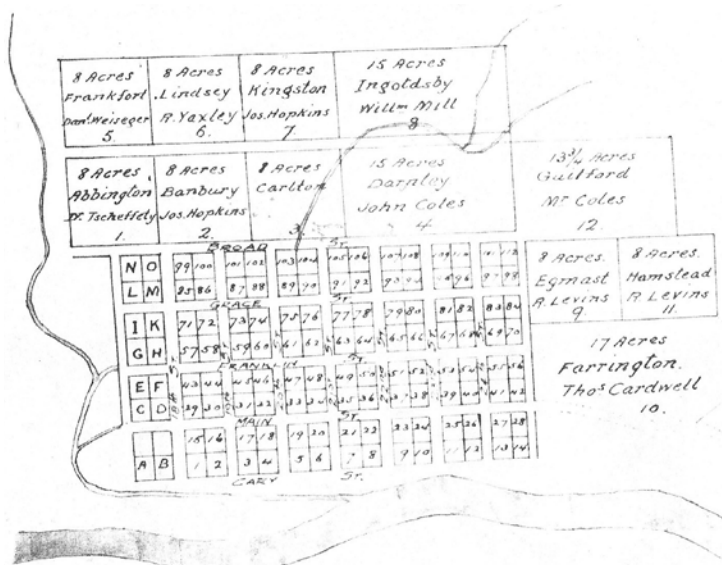 8 Acres
Frankfort
Danl. Weiseger
5.
8 Acres
Lindsey
R. Yaxley
6.
8 Acres
Kingston
Jos. Hopkins
7
15 Acres
Ingoldsby
Willm Mill
8
8 Acres
Abbington
Dr. Tscheffely
1.
8 Acres
Banbury
Jos. Hopkins
2.
8 Acres
Carlton
3.
15 Acres
Darnley
John Coles
4.
13 3/4 Acres
Guilford
Mr Coles
12.
8 Acres.
Egmast
R. Levins
9
8 Acres.
Hamstead
R. Levins
11.
17 Acres
Farrington.
Thos Cardwell
10.
BROAD St.
N O 99 100 101 102 103 104 105 106 107 108 109 110 111 112
L M 85 86 87 88 89 90 91 92 93 94 95 96 97 98
GRACE St.
I K 71 72 73 74 75 76 77 78 79 80 81 82 83 84
G H 57 58 59 60 61 62 63 64 65 66 67 68 69 70
FRANKLIN St.
E F 43 44 45 46 47 48 49 50 51 52 53 54 55 56
C D 29 30 31 32 33 34 35 36 37 38 39 40 41 42
MAIN St.
15 16 17 18 19 20 21 22 23 24 25 26 27 28
A B 1 2 3 4 5 6 7 8 9 10 11 12 13 14
CARY St.